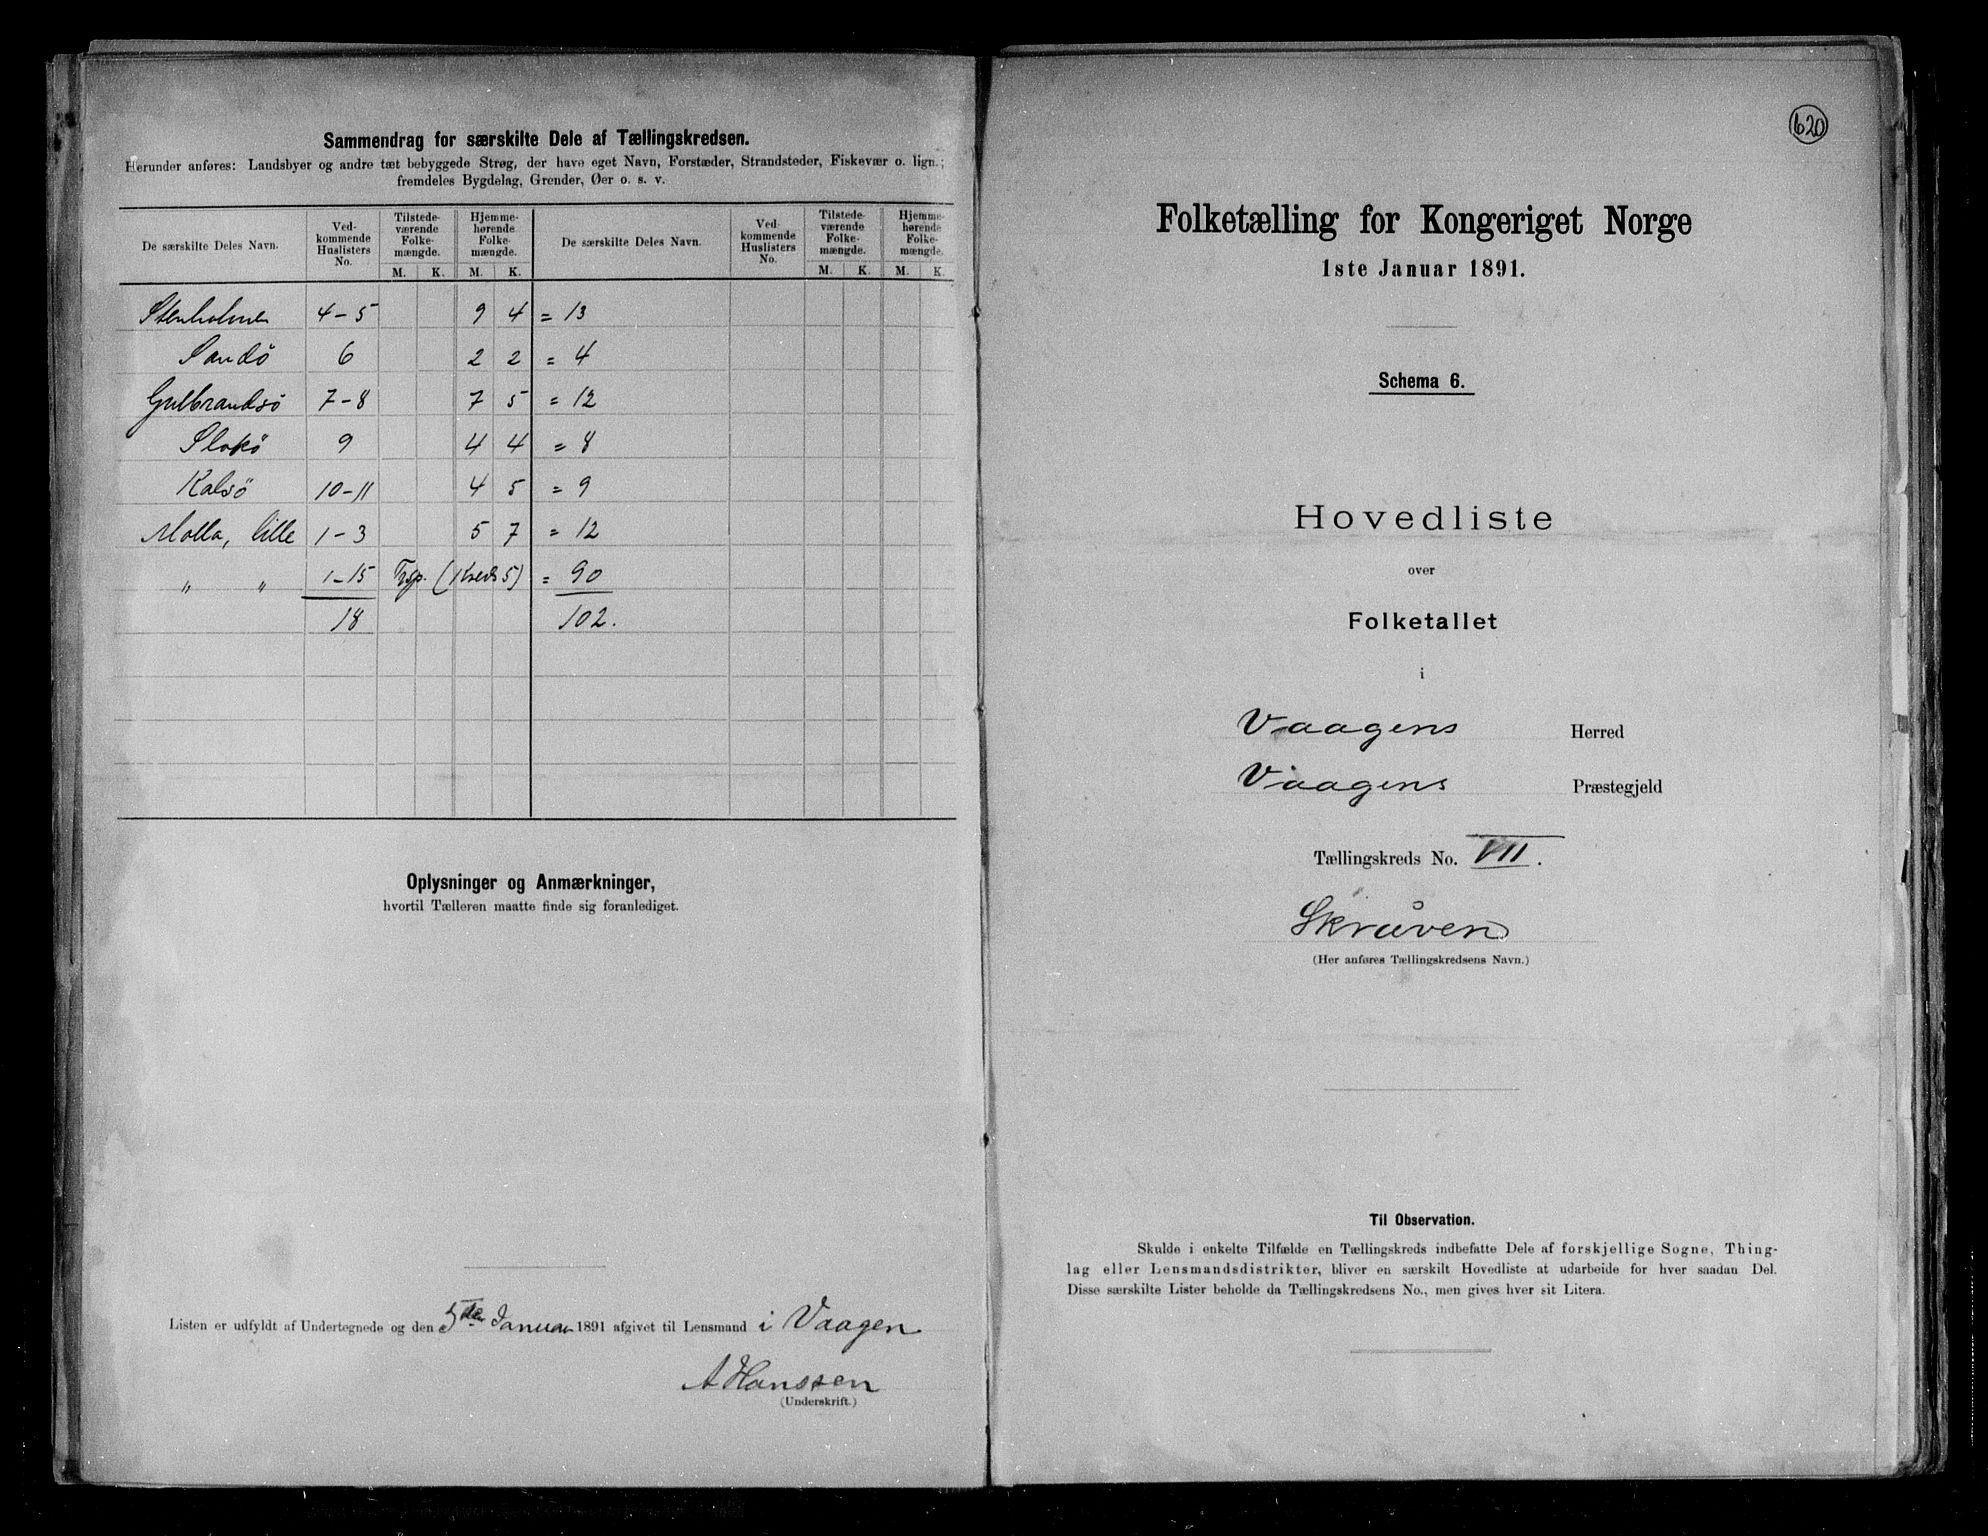 Sammendrag for særskilte Dele af Tællingskredsen.
Herunder anføres: Landsbyer og andre tæt bebyggede Strøg, der have eget Navn, Forstæder, Strandsteder, Fiskevær o. lign.;
fremdeles Bygdelag, Grender, Øer o. s. v.
De særskilte Deles Navn. Ved-kommende Huslisters No. Tilstede-værende Folke-mængde. Hjemme-hørende Folke-mængde. De særskilte Deles Navn. Ved-kommende Huslisters No. Tilstede-værende Folke-mængde. Hjemme-hørende Folke-mængde.
M. K. M. K. M. K. M. K.
Stenholmen 4-5 9 4 = 13
Sandö 6 2 2 = 4
Gulbrandsö 7-8 7 5 = 12
Slokö 9 4 4 = 8
Kalsö 10-11 4 5 = 9
Molla, lille 1-3 5 7 = 12
" " 1-15 (Kreds 5) = 90
18 102.
Oplysninger og Anmærkninger,
hvortil Tælleren maatte finde sig foranlediget.
Listen er udfyldt af Undertegnede og den 5te Januar 1891 afgivet til Lensmand i Vaagen
A Hanssen
(Underskrift.)
620
Folketælling for Kongeriget Norge
1ste Januar 1891.
Schema 6.
Hovedliste
over
Folketallet
i
Vaagens Herred
Vaagens Præstegjeld
Tællingskreds No. VII.
Skråven
(Her anføres Tællingskredsens Navn.)
Til Observation.
Skulde i enkelte Tilfælde en Tællingskreds indbefatte Dele af forskjellige Sogne, Thing-
lag eller Lensmandsdistrikter, bliver en særskilt Hovedliste at udarbeide for hver saadan Del.
Disse særskilte Lister beholde da Tællingskredsens No., men gives hver sit Litera.